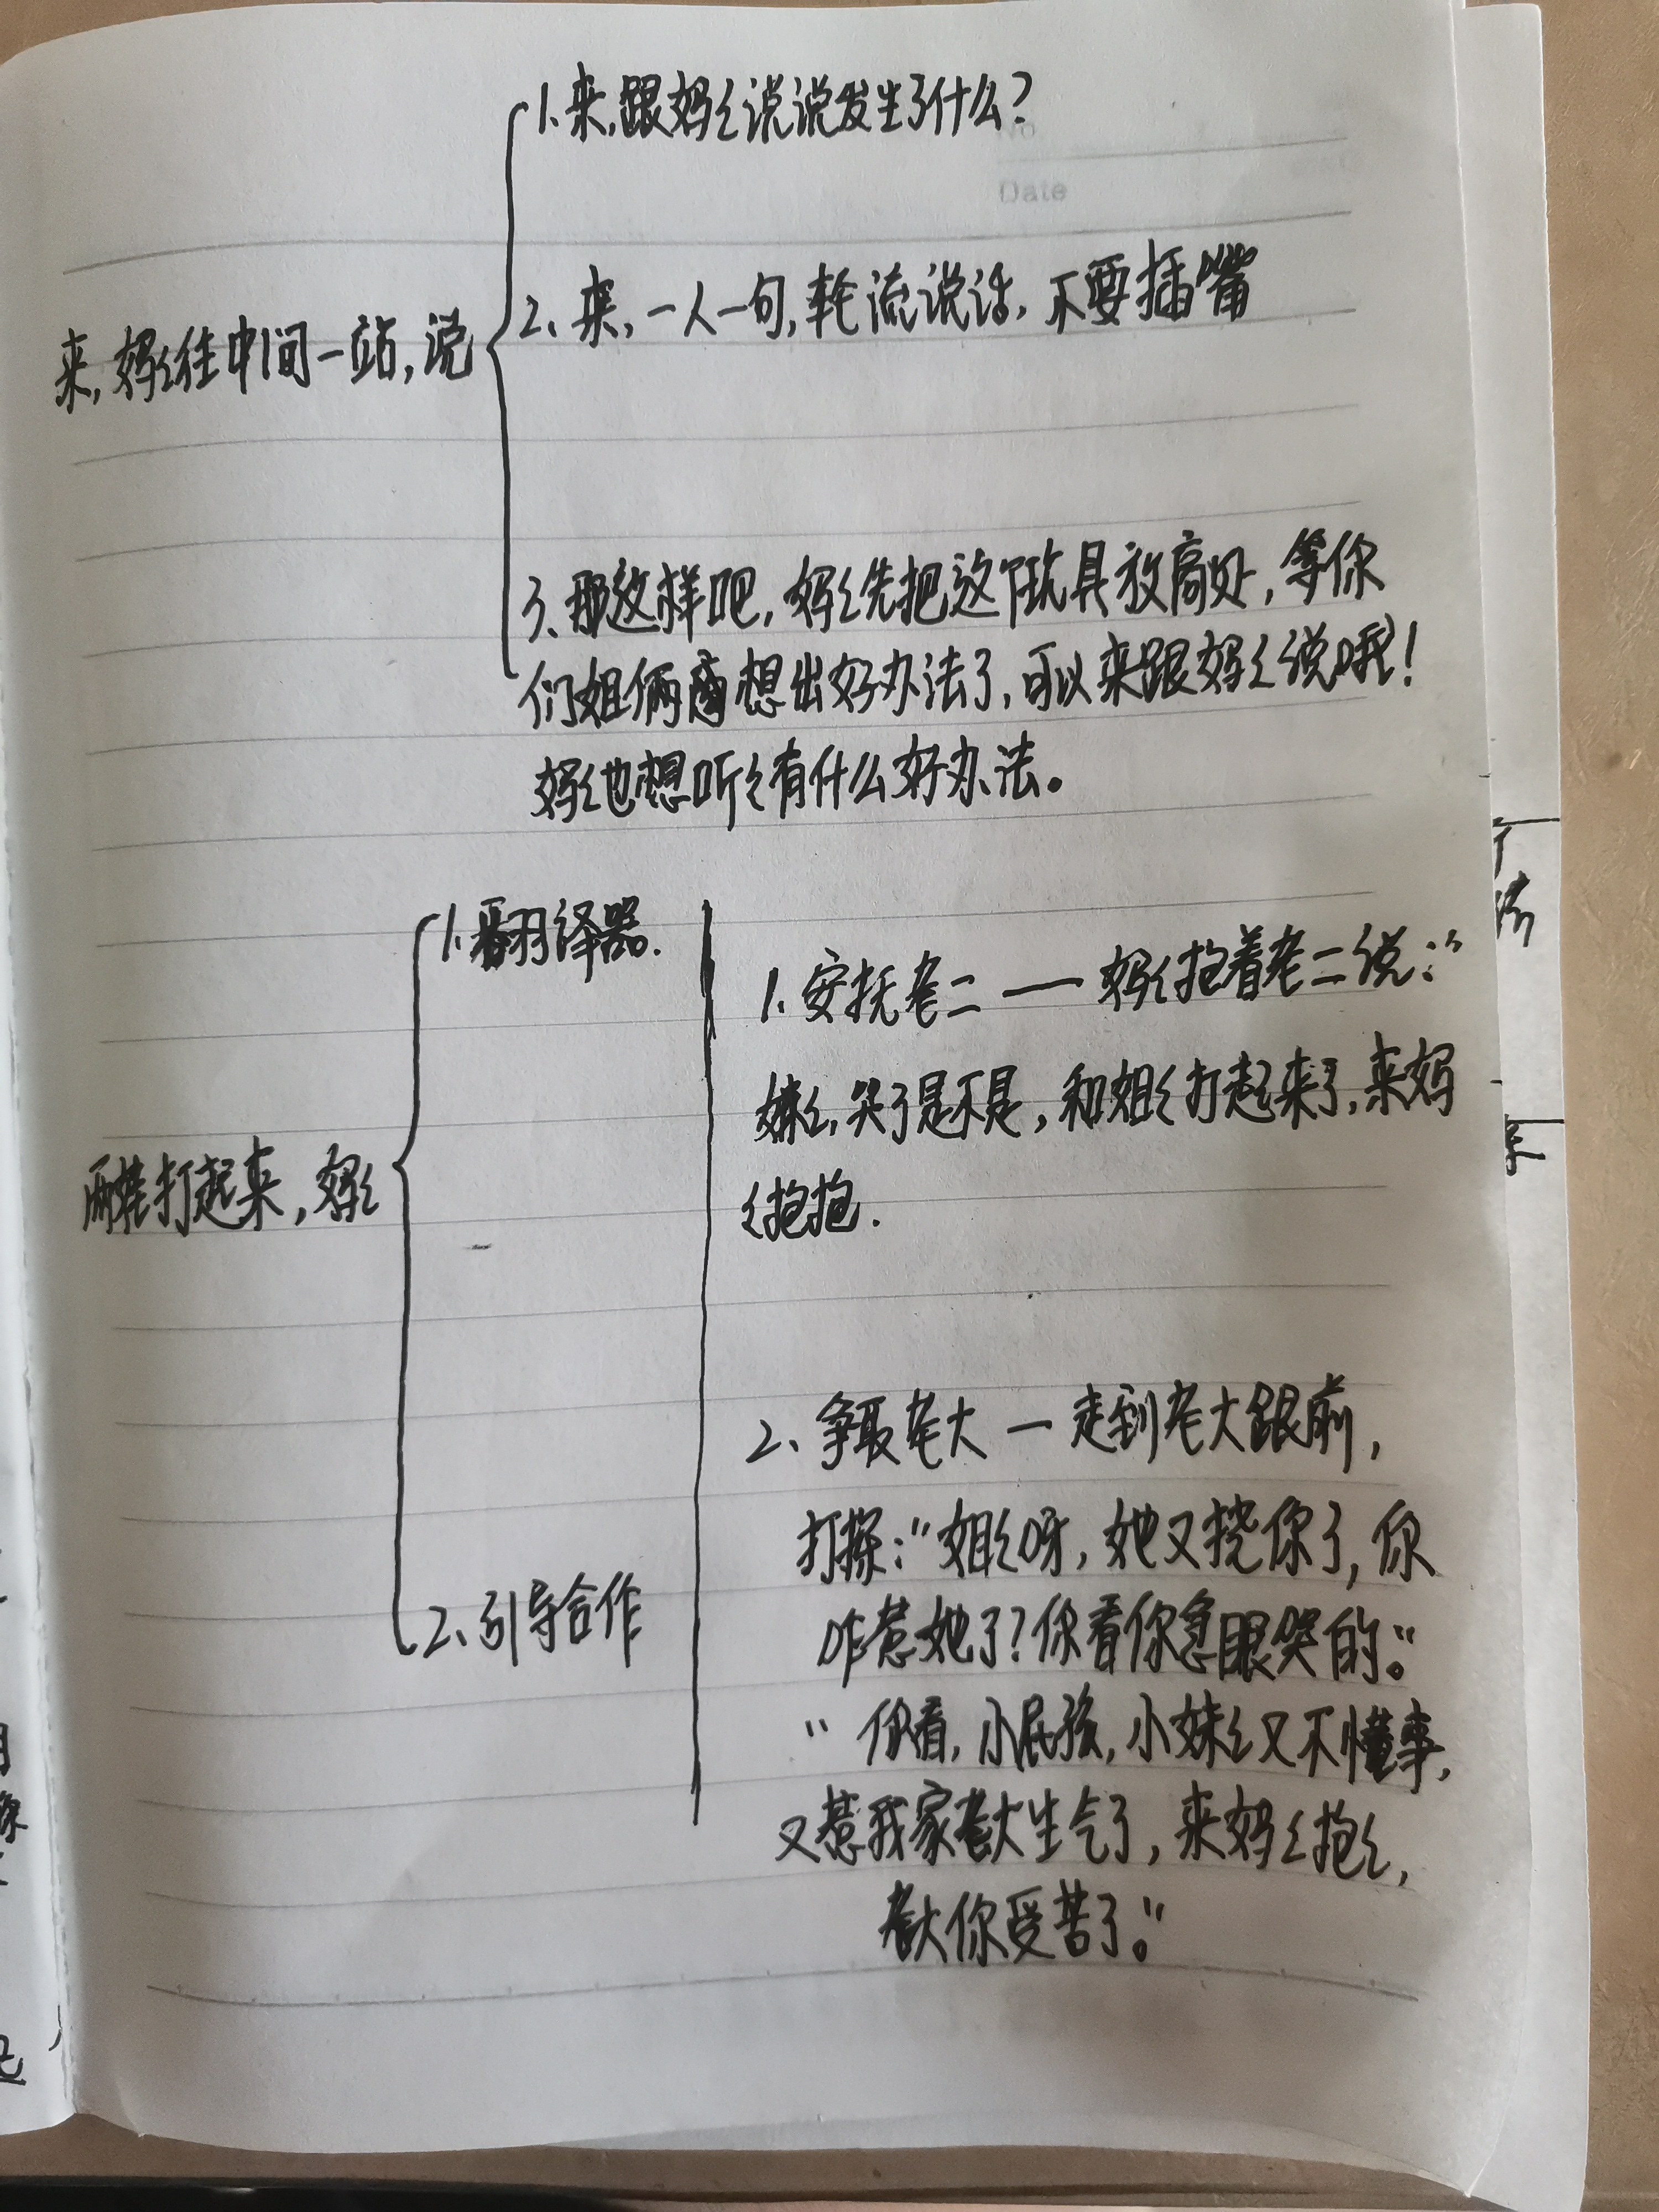 1.来,跟妈く说说发生了什么?
Date
2、来,一人一句,轮流说话,不要插嘴
来,妈く往中间一站,说
3、那这样吧,妈く先把这个玩具放高处,等你
们姐俩想出好办法了,可以来跟妈く说哦!
妈く也想听く有什么好办法。
1.翻译器.
1.安抚老二——妈く抱着老二说:“
妹く,哭了是不是,和姐く打起来了,来妈
く抱抱.
两娃打起来,妈く
2、争取老大一走到老大跟前,
打探:“姐く呀,她又挠你了,你
咋惹她了?你看你急眼哭的。”
2、引导合作
“你看,小屁孩,小妹く又不懂事,
又惹我家老大生气了,来妈く抱く,
老大你受苦了。”